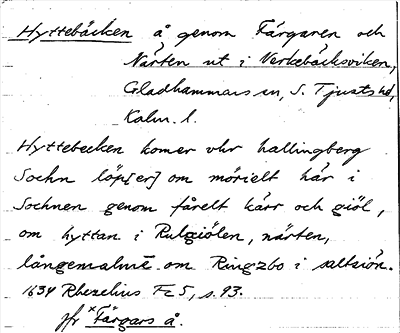 Hyttebäcken å genom Färgaren och
Närten ut i Verkebäcksviken,
Gladhammars sn, S. Tjusts hd,
Kalm. l.
Hyttebecken komer vhr hallingberg
Sochn löp[er] om mörielt här i
Sochnen genom fårelt kärr och giöl,
om hyttan i Rulgiölen, närten,
långemalmē om Ringzbo i saltsiön.
1634 Rhezelius Fc 5, s. 93.
jfr × Färgars å.